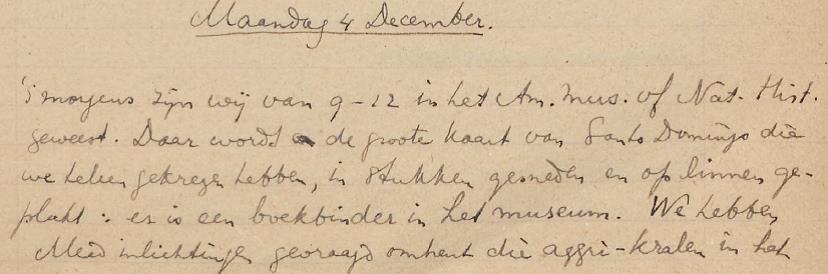 Maandag 4 December.
's morgens zijn wij van 9-12 in het Am. Mus. of Nat. Hist.
geweest. Daar wordt de groote kaart van Santo Domingo die
we gekregen hebben, in stukken gesneden en op linnen ge-
plakt : er is een boekbinder in het museum. We hebben
inlichtingen gevraagd omtrent die aggri-kralen in het